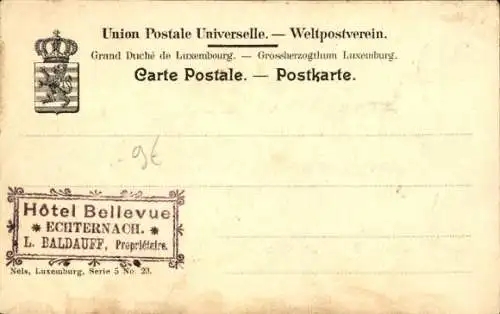 Union Postale Universelle. — Weltpostverein.
Grand Duché de Luxembourg. — Grossherzogthum Luxemburg.
Carte Postale. — Postkarte.
9€
Hôtel Bellevue
* ECHTERNACH. *
L. BALDAUFF, Propriétaire.
Nels, Luxemburg, Serie 5 No. 29.